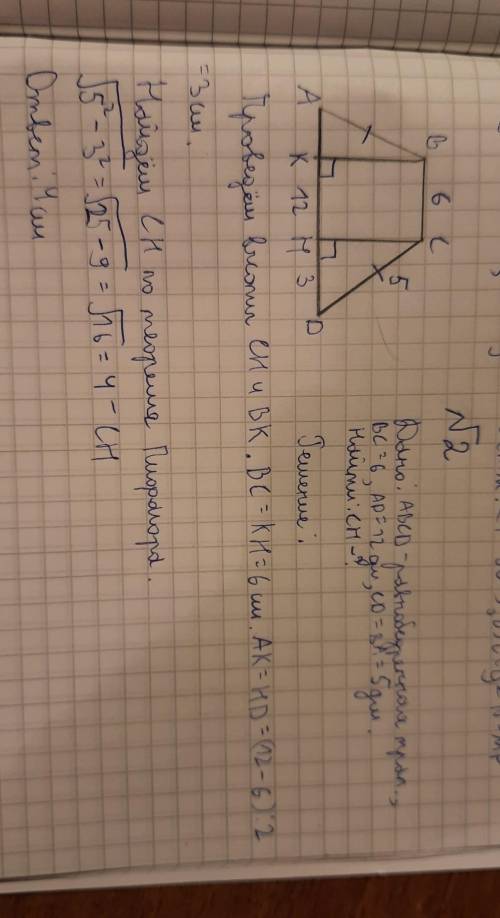 №2
Дано: ABCD - равнобедренная трап.,
BC = 6, AD = 12 дм, CD = = 5 дм.
Найти: CH - ?
B 6 C
5
A K 12 H 3 D
Решение:
Проведём высоты CH и BK. BC = KH = 6 см. AK = HD = (12 - 6) : 2
= 3 см.
Найдём CH по теореме Пифагора.
√5² - 3² = √25 - 9 = √16 = 4 - CH
Ответ: 4 см